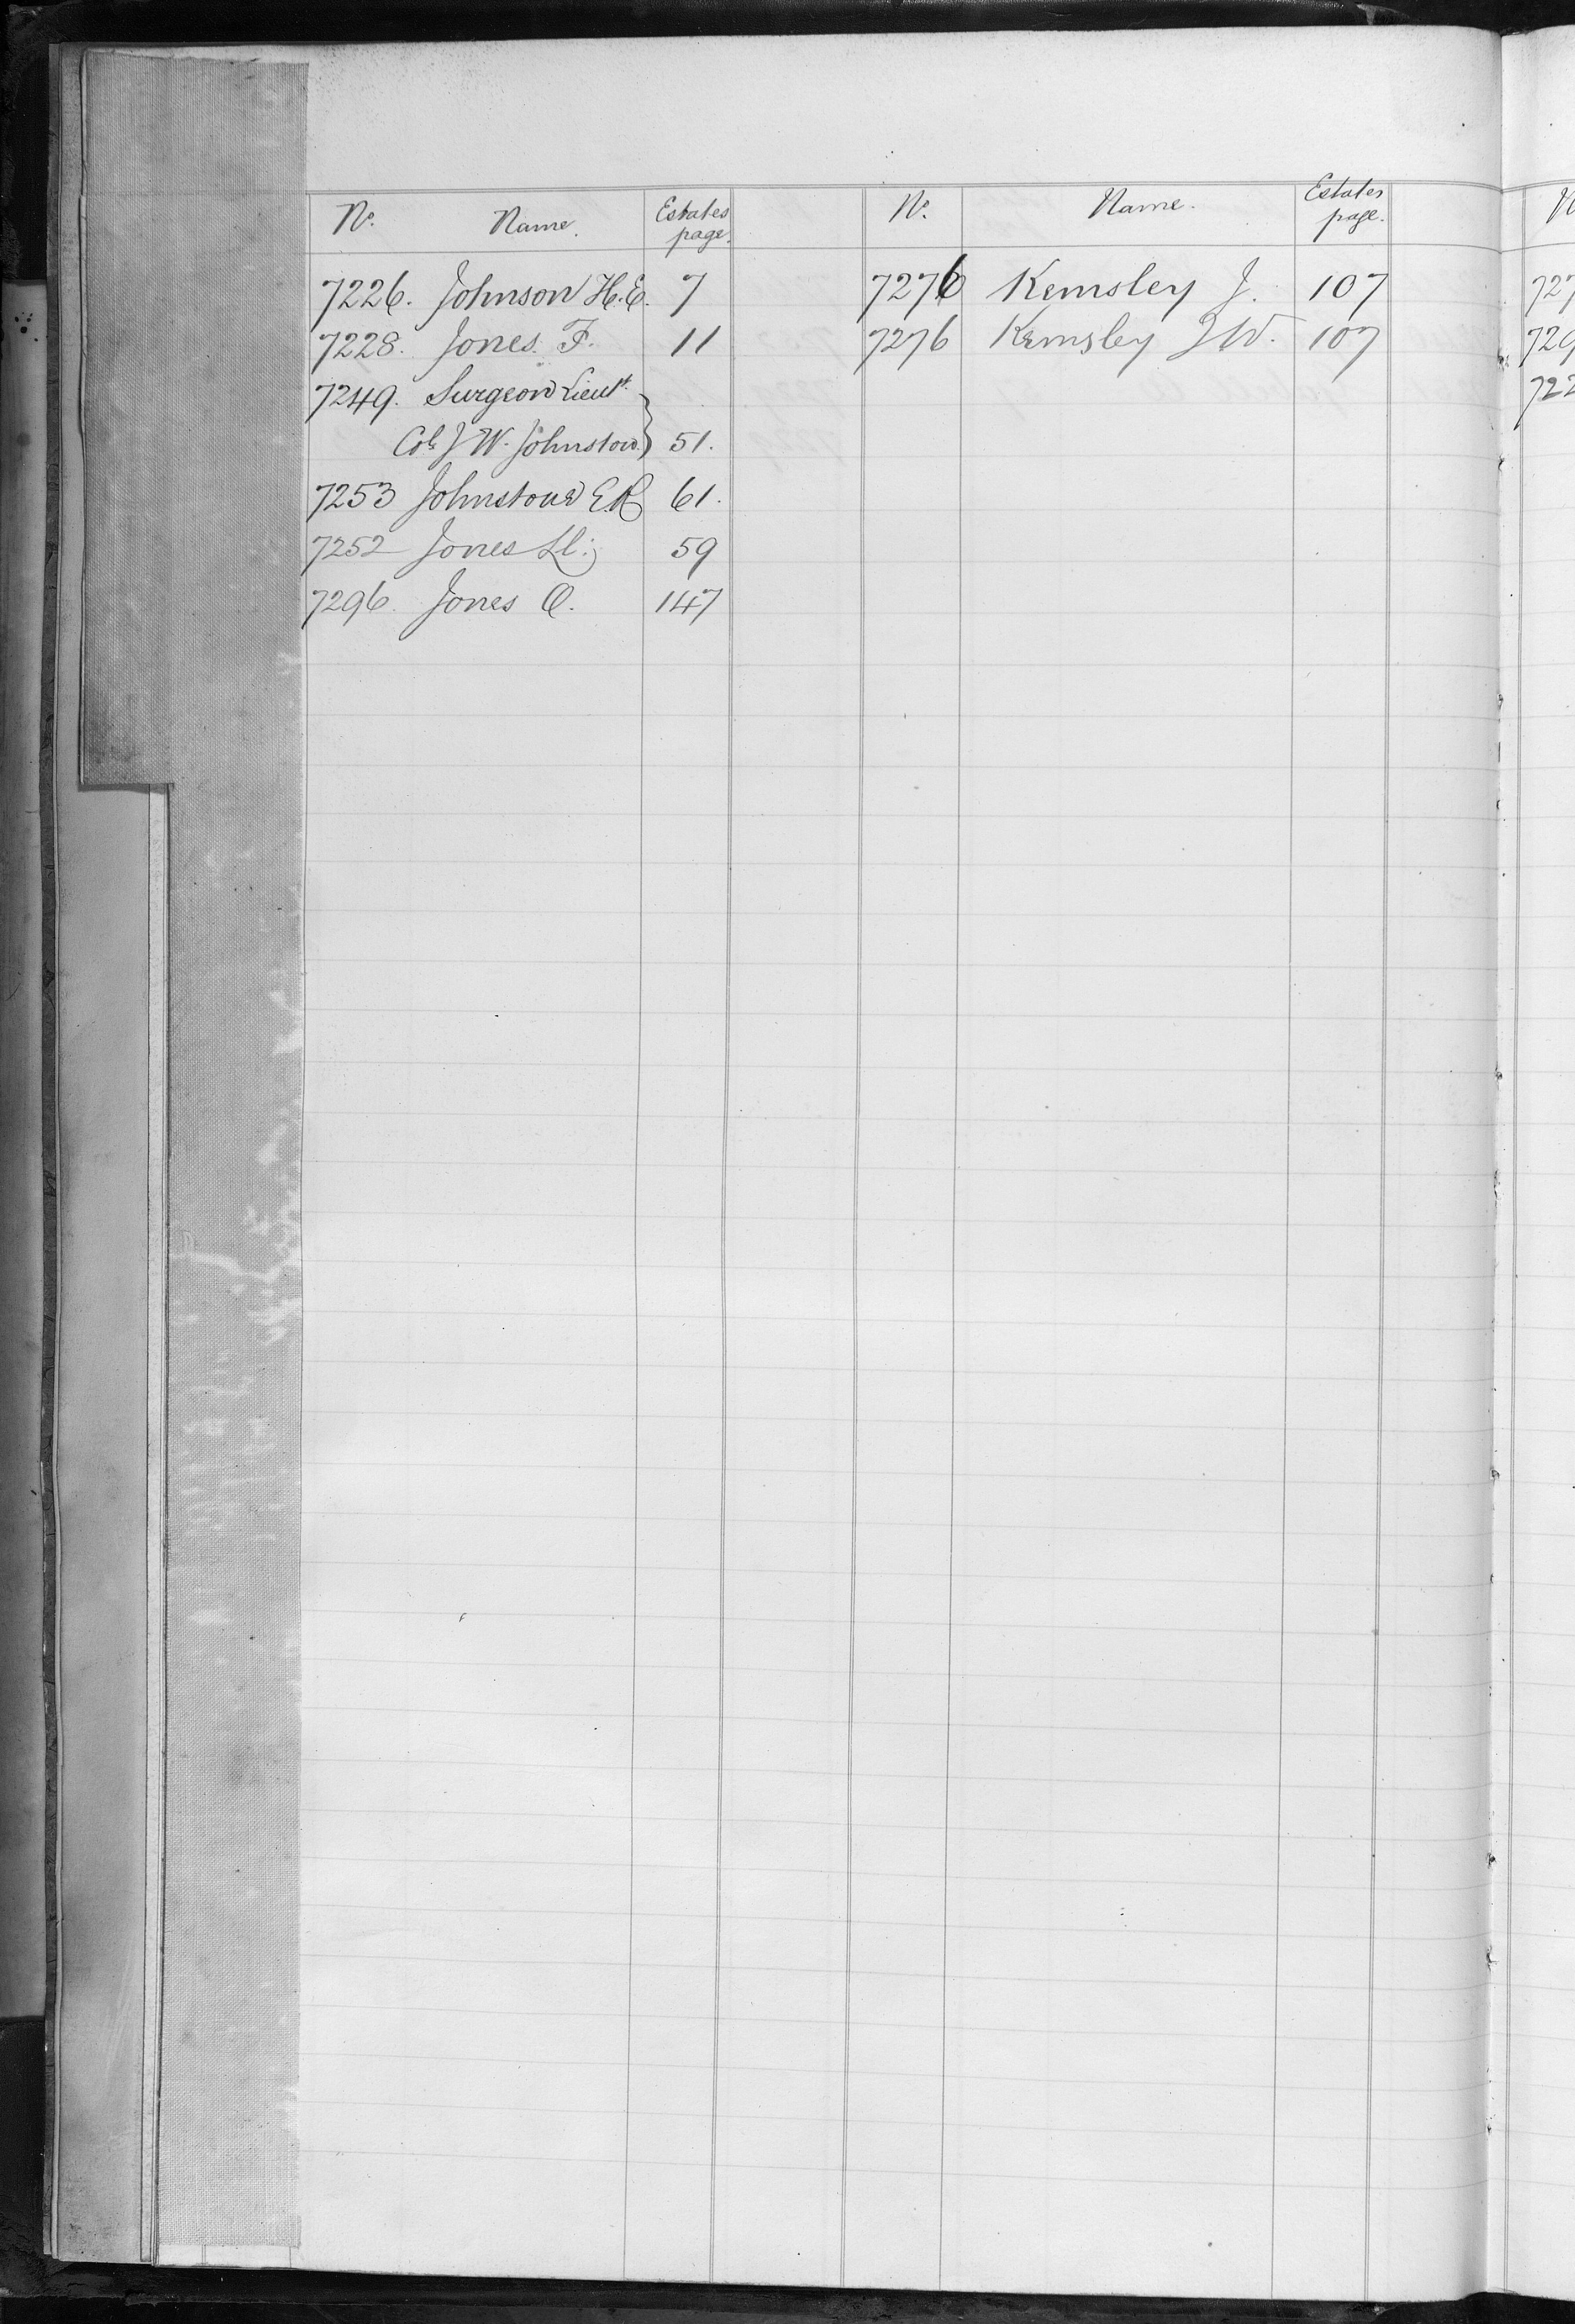 No. Name. Estates page.
7226. Johnson H.E. 7
7228. Jones. F. 11
7249. Surgeon Lieut.
Col. J W. Johnston } 51.
7253 Johnstone E.R 61.
7252 Jones Ll: 59
7296. Jones O. 147
No. Name. Estates page.
7276 Kemsley J. 107
7276 Kemsley J W. 107
N
727
729
722